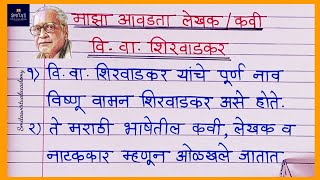 माझा आवडता लेखक/कवी
वि. वा. शिरवाडकर
१) वि. वा. शिरवाडकर यांचे पूर्ण नाव
विष्णू वामन शिरवाडकर असे होते.
२) ते मराठी भाषेतील कवी, लेखक व
नाटककार म्हणून ओळखले जातात